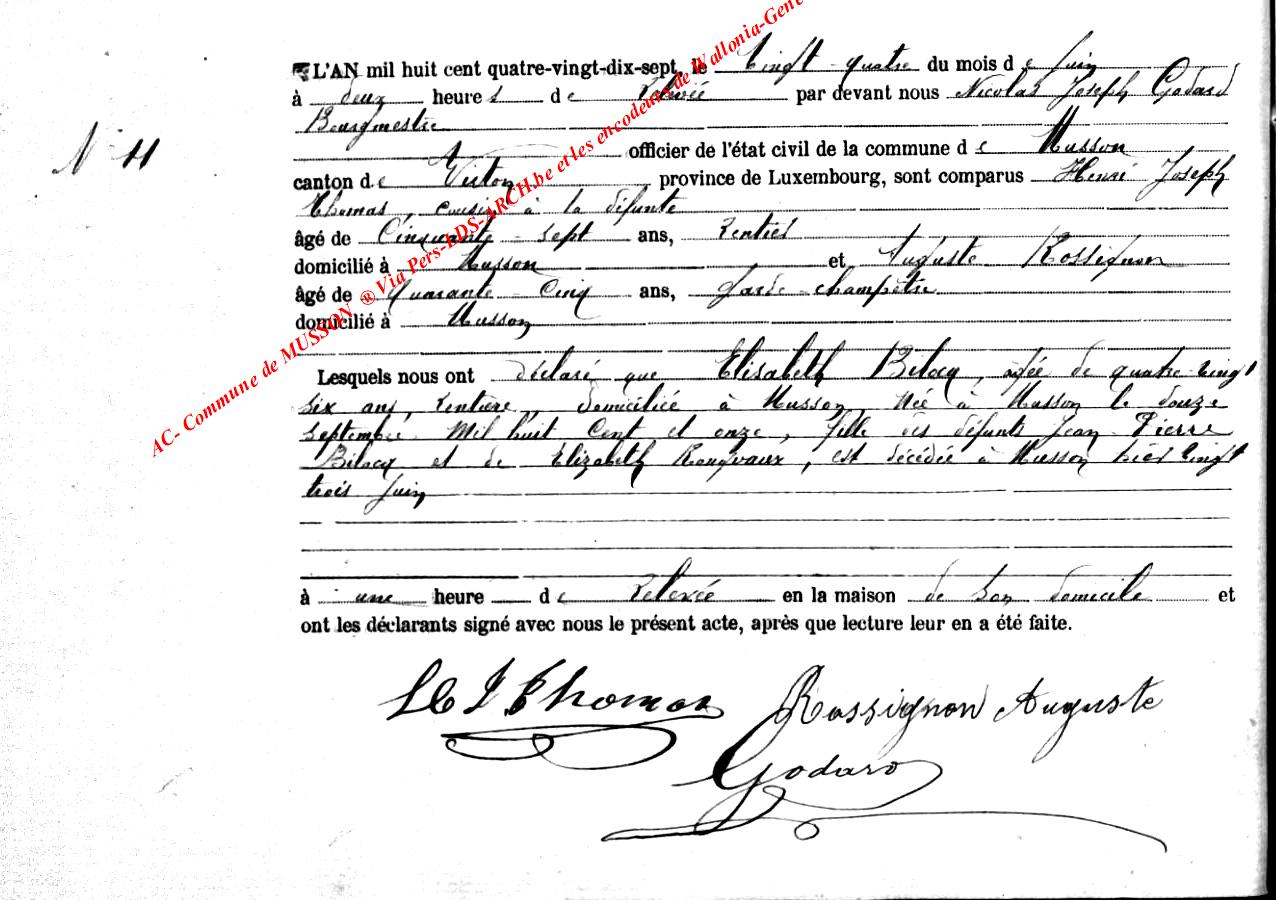 AC- Commune de MUSSON ® Via Pers-LDS-ARCH.be et les encodeurs de Wallonia-Gene
N° 11
L'AN mil huit cent quatre-vingt-dix-sept, le Vingt quatre du mois de Juin
à deux heures de Relevée par devant nous Nicolas Joseph Godard
Bourgmestre
officier de l'état civil de la commune de Musson
canton de Virton province de Luxembourg, sont comparus Henri Joseph
Thomas, cousin à la défunte
âgé de Cinquante-sept ans, Rentier
domicilié à Musson et Auguste Rossignon
âgé de Quarante-Cinq ans, Garde-champêtre
domicilié à Musson
Lesquels nous ont déclaré que Elisabeth Bilocq, agée de quatre Vingt
six ans, Rentière, domiciliée à Musson, Née à Musson le douze
Septembre Mil huit Cent et onze, fille des défunts Jean Pierre
Bilocq et de Elizabeth Rongvaux, est décédée à Musson hier Vingt
trois Juin
à une heure de Relevée en la maison de Son domicile et
ont les déclarants signé avec nous le présent acte, après que lecture leur en a été faite.
H J Thomas Rossignon Auguste
Godard